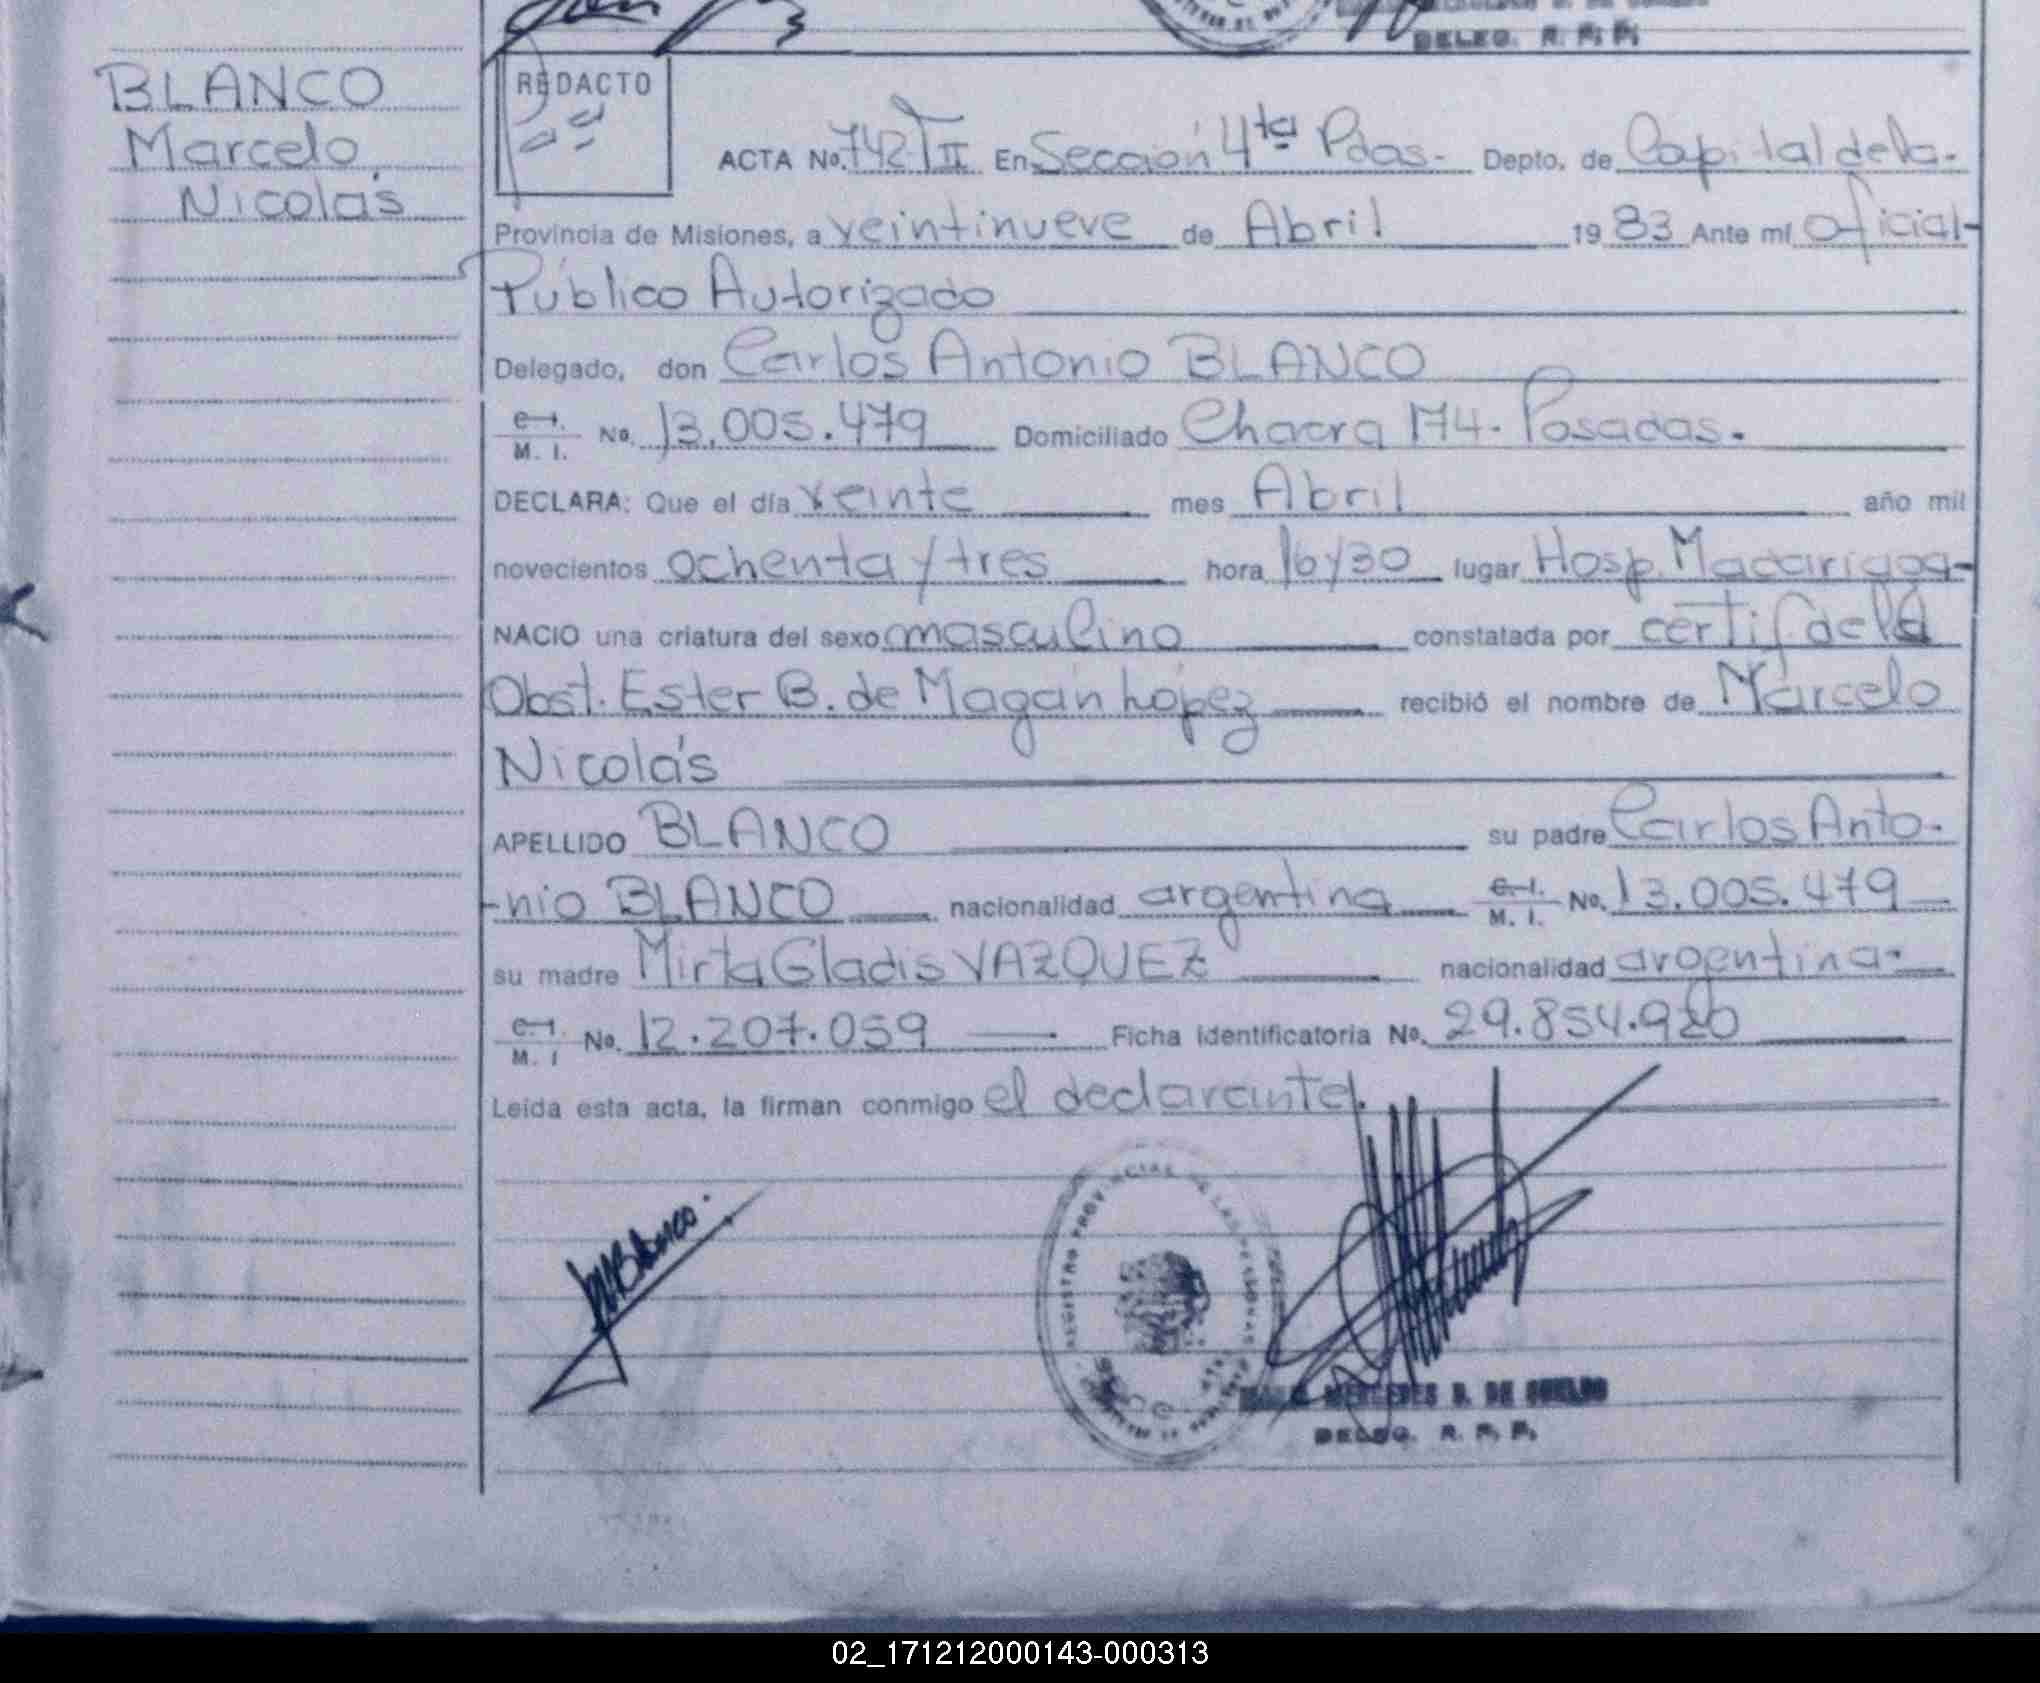 DELEG. R. P. P.
BLANCO
Marcelo
Nicolás
REDACTO
ACTA No. 742 T II En Sección 4ta Pdas. Depto. de Capital de la
Provincia de Misiones, a veintinueve de Abril 19 83 Ante mí Oficial
Público Autorizado
Delegado, don Carlos Antonio BLANCO
C. I.
M. I. No. 13.005.479 Domiciliado Chacra 174. Posadas.
DECLARA: Que el día veinte mes Abril año mil
novecientos ochenta y tres hora 16y30 lugar Hosp. Madariaga
NACIO una criatura del sexo masculino constatada por certif de la
Obst. Ester B. de Magán López recibió el nombre de Marcelo
Nicolás
APELLIDO BLANCO su padre Carlos Anto-
-nio BLANCO nacionalidad argentina C. I. M. I. No. 13.005.479
su madre Mirta Gladis VAZQUEZ nacionalidad argentina.
C. I.
M. I No. 12.207.059 Ficha identificatoria No. 29.854.920
Leída esta acta, la firman conmigo el declarante.
Blanco.
REGISTRO PROVINCIAL DE LAS PERSONAS
MERCEDES B. DE
DELEG. R. P. P.
02_171212000143-000313